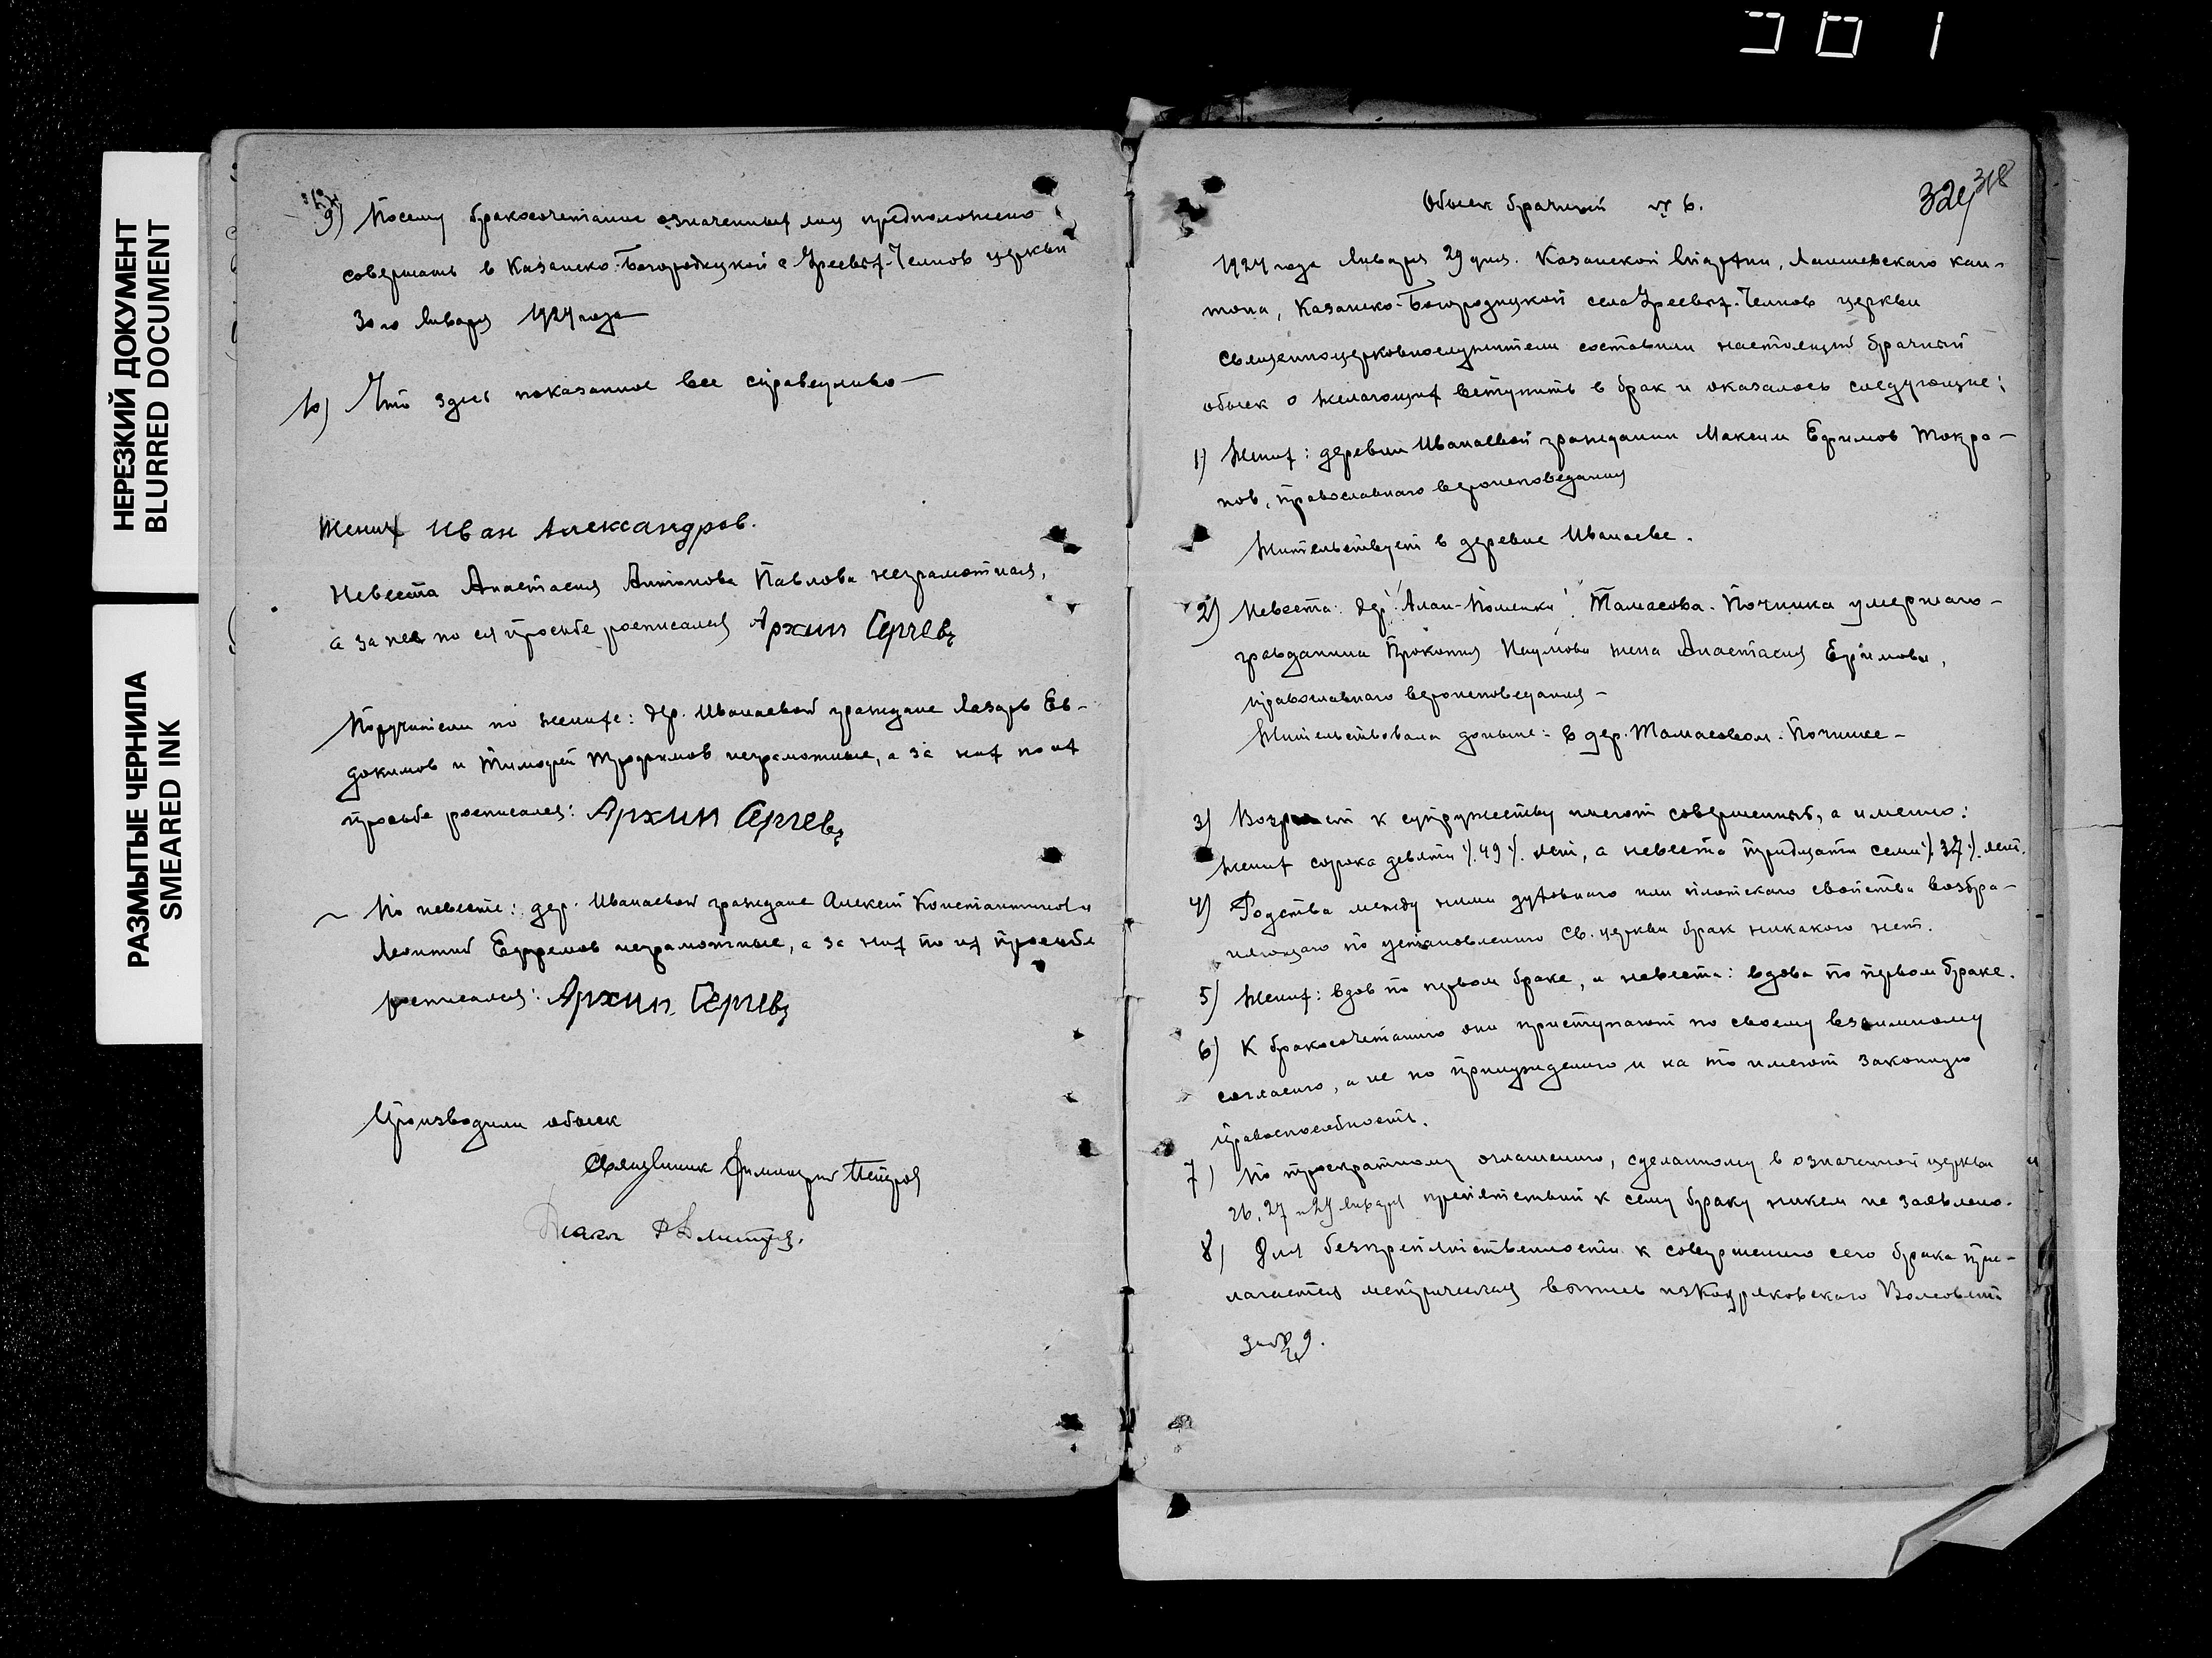 301
НЕРЕЗКИЙ ДОКУМЕНТ
BLURRED DOCUMENT
РАЗМЫТЫЕ ЧЕРНИЛА
SMEARED INK
9) Посему бракосочетание означенных лиц предположено
совершить в Казанско-Богородицкой с. Уреевых-Челнов церкви
30го Января 1924 года
10) Что здесь показанное все справедливо
Жених Иван Александров.
Невеста Анастасия Антонова Павлова неграмотная,
а за нея по ея просьбе росписался Архип Сергеевъ
Поручители по женихе: дер. Иванаевой граждане Лазарь Ев-
докимов и Тимофей Трофимов неграмотные, а за них по их
просьбе росписался: Архип Сергеевъ
По невесте: дер. Иванаевой граждане Алексей Константинов и
Леонтий Ефремов неграмотные, а за них по их просьбе
росписался: Архип Сергеевъ
Производили обыск
Священник Петров
318
Обыск брачный № 6.
1924 года Января 29 дня. Казанской Епархии, Лаишевскаго кан-
тона, Казанско-Богородицкой села Уреевых-Челнов церкви
священноцерковнослужители составили настоящий брачный
обыск о желающих вступить в брак и оказалось следующие:
1) Жених: деревни Иванаевой гражданин Максим Ефимов
православнаго вероисповедания
Жительствует в деревне Иванаеве.
2) Невеста: дер. Починка умершаго
гражданина Прокопия Наумова жена Анастасия Ефимова,
православнаго вероисповедания -
Жительствовала доныне: в дер. Починке -
3) Возраст к супружеству имеют совершенный, а именно:
жених сорока девяти /.49/. лет, а невеста тридцати семи /.37/. лет.
4) Родства между ними духовнаго или плотскаго свойства возбра-
няющаго по установлению Св. церкви брак никакого нет.
5) Жених: вдов по первом браке, а невеста: вдова по первом браке.
6) К бракосочетанию они приступают по своему взаимному
согласию, а не по принуждению и на то имеют законную
правоспособность.
7) По троекратному оглашению, сделанному в означенной церкви
26, 27 и 29 Января препятствий к сему браку никем не заявлено.
8) Для безпрепятственности к совершению сего брака при-
лагается метрическая выпись из Кадряковскаго
за № 9.